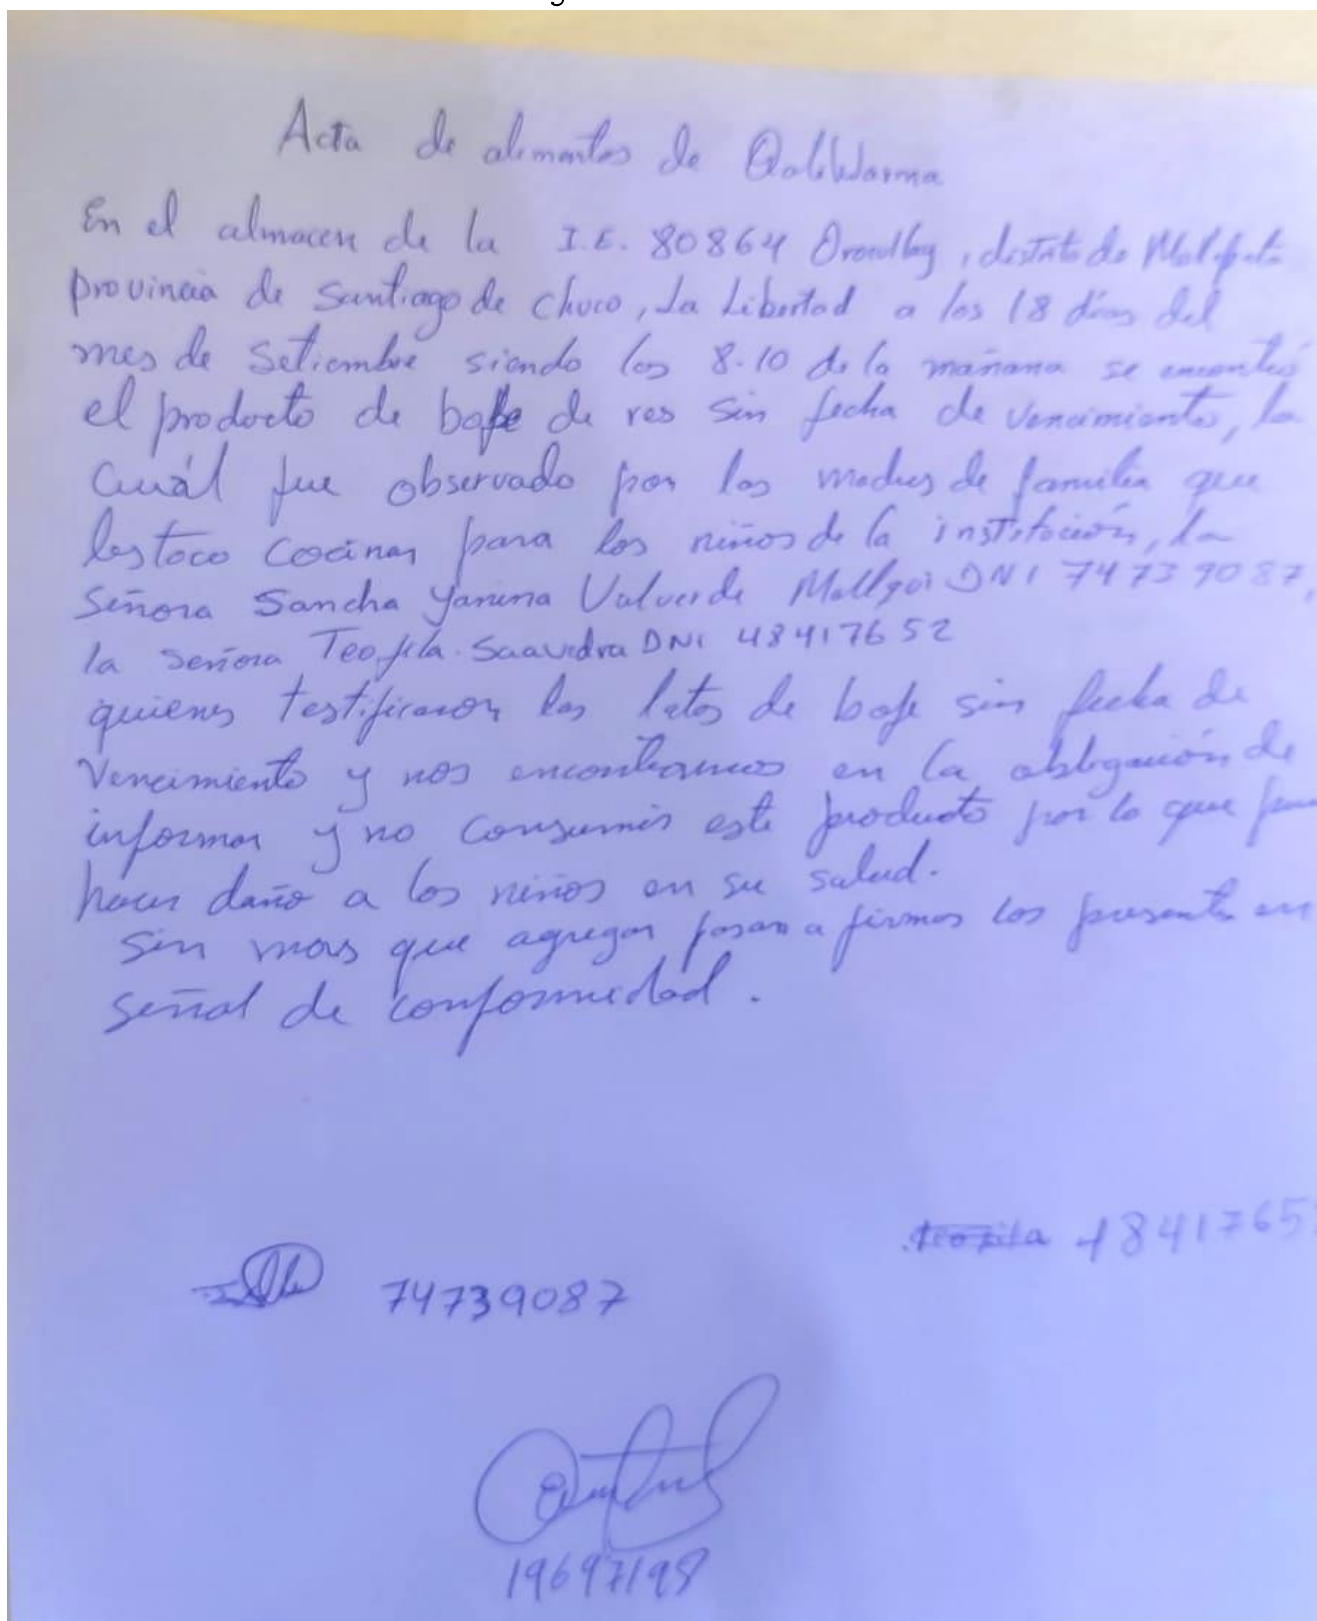 Acta de alimentos de QaliWarma
En el almacen de la I.E. 80864 , distrito de Mollepata
provincia de Santiago de Chuco, La Libertad a los 18 días del
mes de Setiembre siendo las 8.10 de la mañana se encontró
el producto de bofe de res sin fecha de vencimiento, la
cuál fue observado por las madres de familia que
les toco cocinar para los niños de la institución, la
Señora Sancha Yanina Valverde Mallqui DNI 74739087,
la señora Teofila Saavedra DNI 48417652
quienes testificaron las latas de bofe sin fecha de
Vencimiento y nos encontramos en la obligación de
informar y no consumir este producto por lo que
hacer daño a los niños en su salud.
Sin mas que agregar pasan a firmar los presente en
señal de conformidad.
teofila 4841765
74739087
19697198